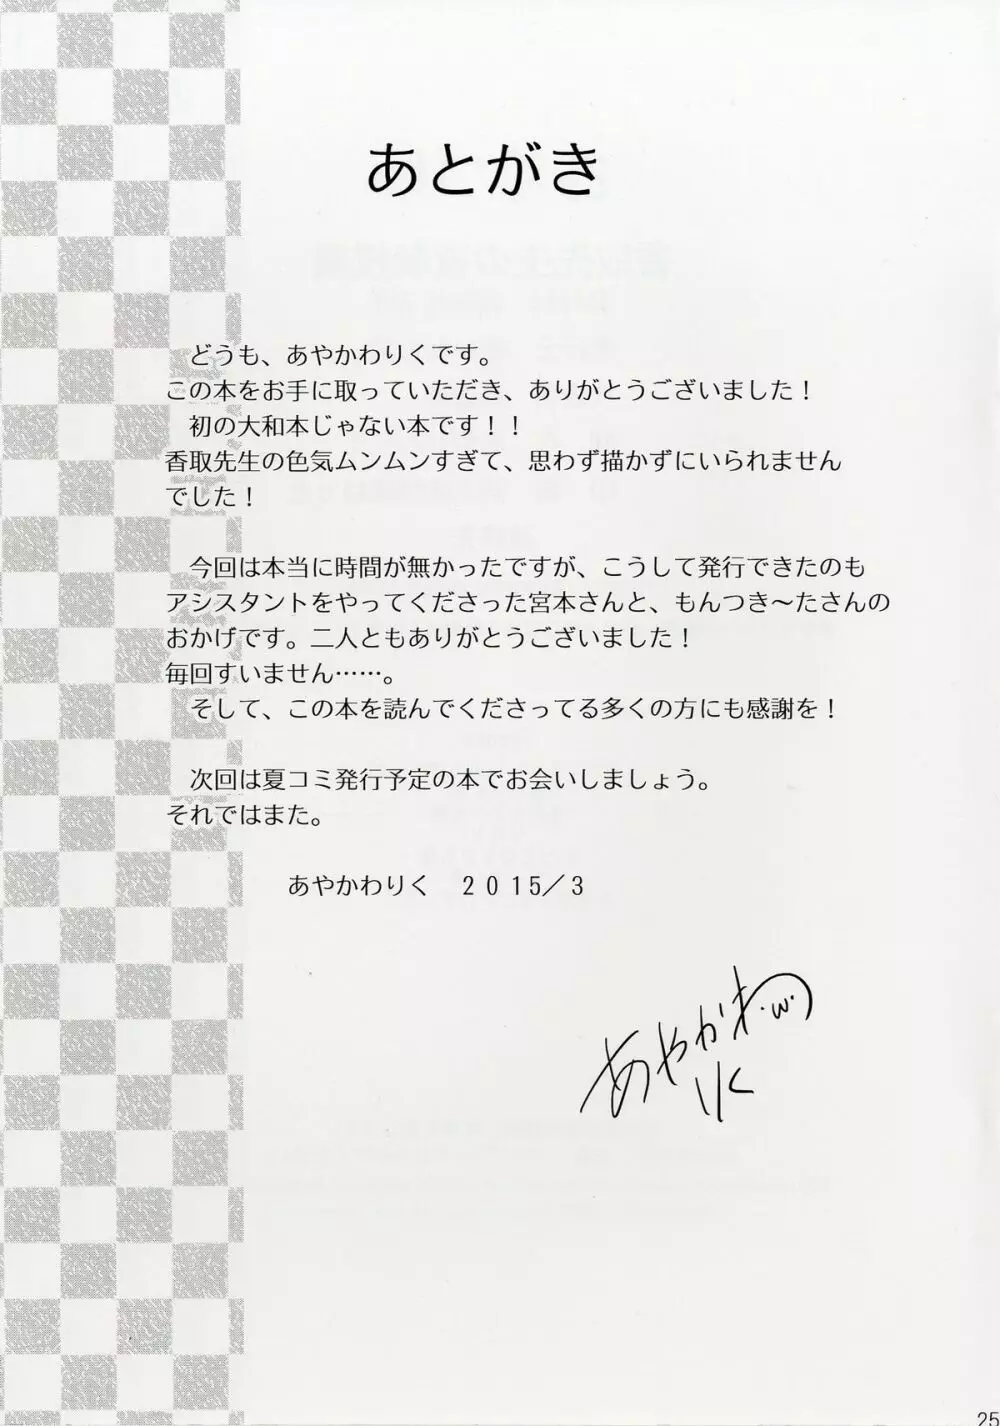 あとがき
どうも、あやかわりくです。
この本をお手に取っていただき、ありがとうございました！
初の大和本じゃない本です！！
香取先生の色気ムンムンすぎて、思わず描かずにいられません
でした！
今回は本当に時間が無かったですが、こうして発行できたのも
アシスタントをやってくださった宮本さんと、もんつき～たさんの
おかげです。二人ともありがとうございました！
毎回すいません……。
そして、この本を読んでくださってる多くの方にも感謝を！
次回は夏コミ発行予定の本でお会いしましょう。
それではまた。
あやかわりく　２０１５／３
あやかわ
りく
25